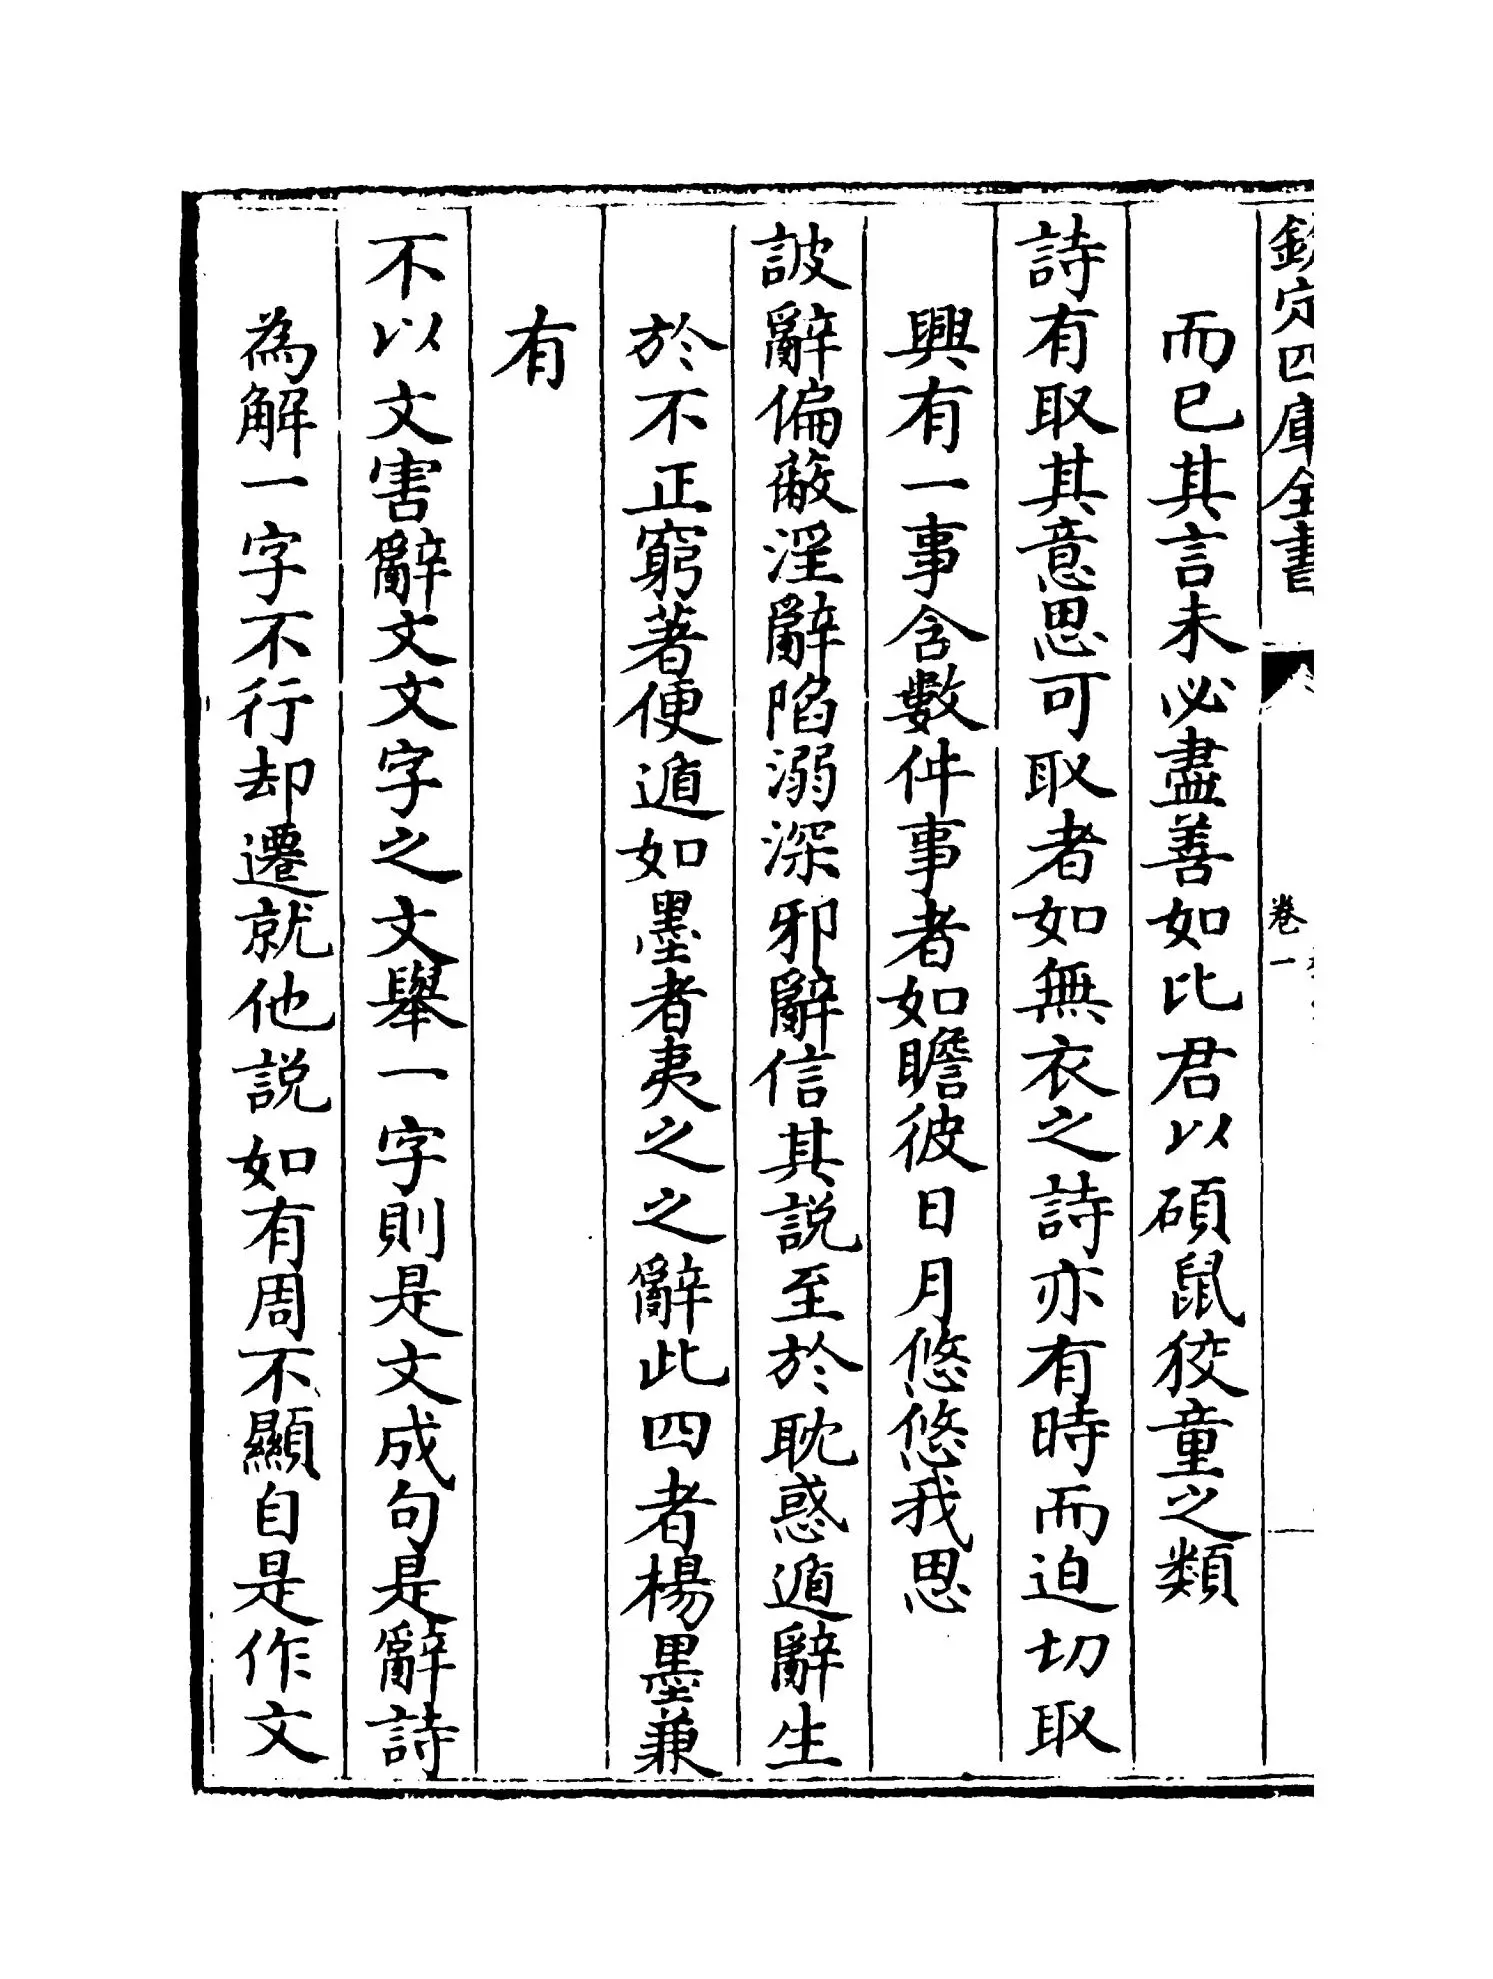 欽定四庫全書
卷一
而已其言未必盡善如比君以碩鼠狡童之類
詩有取其意思可取者如無衣之詩亦有時而迫切取
興有一事含數件事者如瞻彼日月悠悠我思
詖辭偏蔽淫辭陷溺深邪辭信其説至於耽惑遁辭生
於不正窮著便遁如墨者夷之之辭此四者楊墨兼
有
不以文害辭文文字之文舉一字則是文成句是辭詩
為解一字不行却遷就他説如有周不顯自是作文